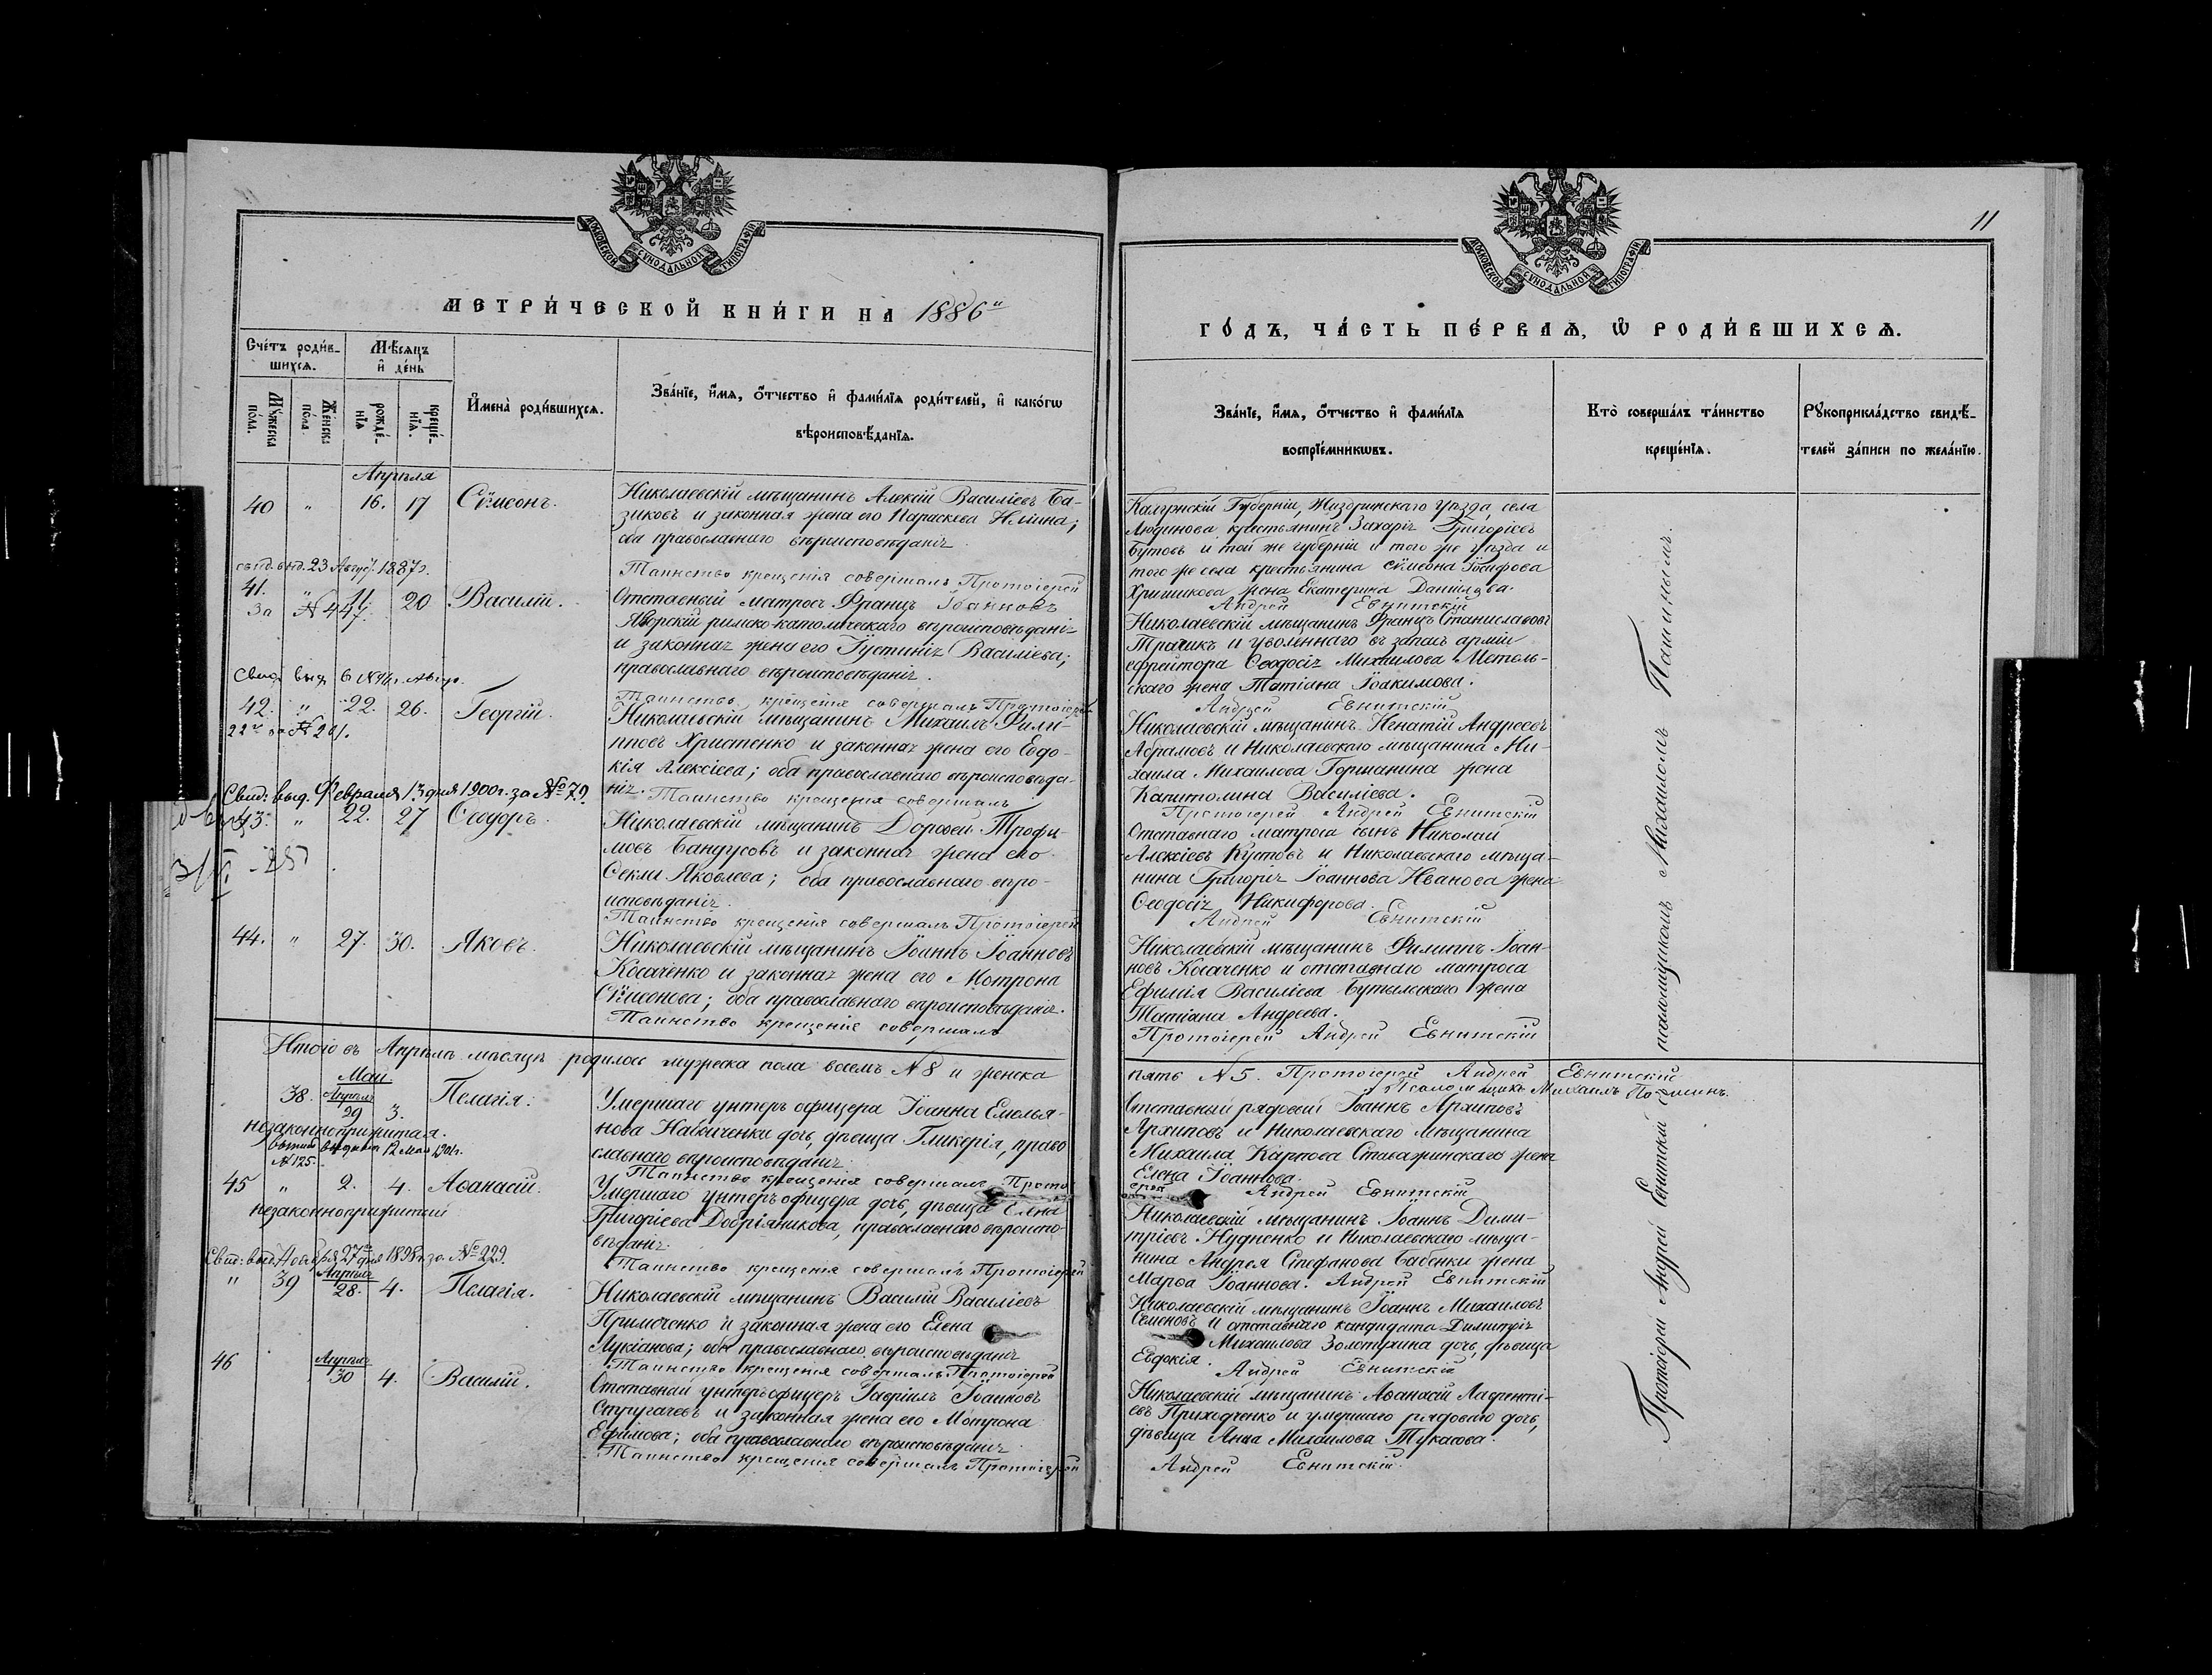 МОСКОВСКОЙ СУНОДАЛЬНОЙ ТИПОГРАФІИ
МЕТРИ́ЧЕСКОЙ КНИ́ГИ НА 1886й
Сче́тъ роди́в-
шихсѧ.
Мѣ́сѧцъ
и҆ де́нь
Мꙋ́жеска
по́ла.
Же́нска
по́ла.
рожде́-
нїѧ
креще́-
нїѧ.
И҆мена̀ роди́вшихсѧ.
Зва́нїе, и҆́мѧ, ѻ҆́тчество и҆ фами́лїѧ роди́телей, и҆ како́гѡ
вѣроисповѣ́данїѧ.
Апрѣля
40 " 16. 17 Сѵмеонъ.
Николаевскій мѣщанинъ Алексій Василіевъ Ба-
зиковъ и законная жена его Параскева Ильина;
оба православнаго вѣроисповѣданія
Таинство крещенія совершалъ Протоіерей
свид. выд. 23 Август. 1887г.
41. " 11. 20 Василій.
За № 447.
Отставный матросъ Францъ Іоанновъ
Яворскій римско-католическаго вѣроисповѣданія
и законная жена его Іустинія Василіева;
православнаго вѣроисповѣданія.
Таинство крещенія совершалъ Протоіерей
Свид. выд.
42. " 22. 26. Георгій.
Николаевскій мѣщанинъ Михаилъ Фили-
пповъ Христенко и законная жена его Евдо-
кія Алексіева; оба православнаго вѣроисповѣда-
нія. Таинство крещенія совершалъ
Свид: выд. Февраля 13 дня 1900г. за № 79.
43. " 22. 27 Ѳеодоръ.
Николаевскій мѣщанинъ Дорофей Трофи-
мовъ Бандусовъ и законная жена его
Ѳекла Яковлева; оба православнаго вѣро-
исповѣданія.
Таинство крещенія совершалъ Протоіерей
44. " 27. 30. Яковъ.
Николаевскій мѣщанинъ Іоаннъ Іоанновъ
Косаченко и законная жена его Мотрона
Сѵмеонова; оба православнаго вѣроисповѣданія.
Таинство крещенія совершалъ
Итого въ Апрѣлѣ мѣсяцѣ родилось мужеска пола восемь № 8 и женска
Май.
38. Апрѣля 29 3. Пелагія.
незаконноприжитая.
12 Мая 1901г.
№ 125.
Умершаго унтеръ офицера Іоанна Емелья-
нова дочь, дѣвица Гликерія, право
славнаго вѣроисповѣданія.
Таинство крещенія совершалъ Прото
45 " 2. 4. Аѳанасій.
незаконноприжитый
Умершаго унтеръ офицера дочь, дѣвица Елена
Григоріева Добріяникова, православнаго вѣроиспо-
вѣданія.
Таинство крещенія совершалъ Протоіерей
Свид: выд. Ноября 27го дня 1898г. за № 229.
" 39 Апрѣля 28. 4. Пелагія.
Николаевскій мѣщанинъ Василій Василіевъ
Примоченко и законная жена его Елена
Лукіанова; оба православнаго вѣроисповѣданія
Таинство крещенія совершалъ Протоіерей
46 Апрѣля 30 4. Василій.
Отставный унтеръ офицеръ Гавріилъ Іоанновъ
Стругачевъ и законная жена его Мотрона
Ефимова; оба православнаго вѣроисповѣданія
Таинство крещенія совершалъ Протоіерей
11
МОСКОВСКОЙ СУНОДАЛЬНОЙ ТИПОГРАФІИ
ГО́ДЪ, ЧА́СТЬ ПЕ́РВАѦ, Ѡ҆ РОДИ́ВШИХСѦ.
Зва́нїе, и҆́мѧ, ѻ҆́тчество и҆ фами́лїѧ
воспрїе́мникѡвъ.
Кто̀ соверша́лъ та́инство
креще́нїѧ.
Рꙋкоприкла́дство свидѣ́-
телей за́писи по жела́нїю.
Калужскій Губерніи, Жиздринскаго уѣзда, села
Людинова крестьянинъ Захарія Григоріевъ
Бутовъ и той же губерніи и того же уѣзда и
того же села крестьянина Сѵмеона Іосифова
Хришикова жена Екатерина Даніилова.
Андрей Евнитскій
Николаевскій мѣщанинъ Францъ Станиславовъ
Трачикъ и уволеннаго въ запасъ арміи
ефрейтора Ѳеодосія Михаилова Метель-
скаго жена Татіана Іоакимова.
Андрей Евнитскій
Николаевскій мѣщанинъ Игнатій Андреевъ
Абрамовъ и Николаевскаго мѣщанина Ми-
хаила Михаилова Горжанина жена
Капитолина Василіева.
Протоіерей Андрей Евнитскій
Отставнаго матроса сынъ Николай
Алексіевъ Кустовъ и Николаевскаго мѣща-
нина Григорія Іоаннова Иванова жена
Ѳеодосія Никифорова.
Андрей Евнитскій
Николаевскій мѣщанинъ Филиппъ Іоан-
новъ Косаченко и отставнаго матроса
Ефимія Василіева Бутыльскаго жена
Татіана Андреева.
Протоіерей Андрей Евнитскій
пять № 5. Протоіерей Андрей Евнитскій
Псаломщикъ Михаилъ
Отставный рядовой Іоаннъ Архиповъ
Архиповъ и Николаевскаго мѣщанина
Михаила Карпова Стваринскаго жена
Елена Іоаннова.
ерей Андрей Евнитскій
Николаевскій мѣщанинъ Іоаннъ Дими-
тріевъ Нудненко и Николаевскаго мѣща-
нина Андрея Стефанова Бабенки жена
Марѳа Іоаннова. Андрей Евнитскій
Николаевскій мѣщанинъ Іоаннъ Михаиловъ
Семеновъ и отставнаго кандидата Димитрія
Михаилова Золотухина дочь, дѣвица
Евдокія. Андрей Евнитскій
Николаевскій мѣщанинъ Аѳанасій Лаврентi-
евъ Приходченко и умершаго рядоваго дочь,
дѣвица Анна Михаилова Тукасова.
Андрей Евнитскій
Протоіерей Андрей Евнитскій съ псаломщикомъ Михаиломъ Пашинымъ.